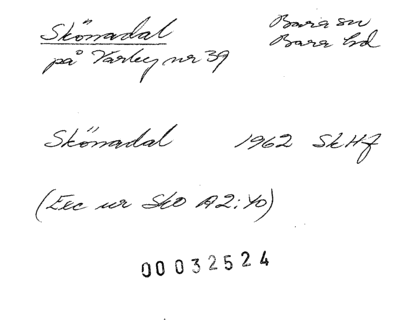 Skönadal Bara sn
på Värby nr 39 Bara hd
Skönadal 1962 SkHf
(Exc ur SkO A2:40)
00032524